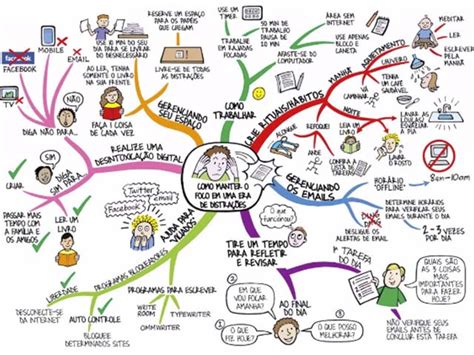 RESERVE UM ESPAÇO
PARA OS PAPÉIS
QUE CHEGAM
USE O MÍN DO SEU
DIA PARA SE LIVRAR
DO DESNECESSÁRIO
AO LER, TENHA
SOMENTE O LIVRO
NA SUA FRENTE
LIVRE-SE DE TODAS
AS DISTRAÇÕES
FAÇA 1 COISA
DE CADA VEZ
GERENCIANDO
SEU ESPAÇO
MOBILE
EMAIL
facebook
FACEBOOK
TV
DIGA NÃO PARA...
REALIZE UMA
DESINTOXICAÇÃO DIGITAL
DIGA
SIM PARA
CRIAR
LER UM
LIVRO
PASSAR MAIS
TEMPO COM
A FAMÍLIA E
OS AMIGOS
USE UM
TIMER
10 MIN DE
TRABALHO
DAÍ UMA
PAUSA DE
10 MIN
TRABALHE EM
RAJADAS
FOCADAS
ÁREA SEM
INTERNET
USE APENAS
BLOCO E
CANETA
AFASTE-SE DO
COMPUTADOR
COMO
TRABALHAR
CRIE RITUAIS/HÁBITOS
MANHÃ
AQUIETAMENTO
MEDITAR
LER
ESCREVER
CHUVEIRO
TENHA UM
CAFÉ
SAUDÁVEL
NOITE
ALONGUE
REFOQUE
LEIA UM
LIVRO
CONFIRA A
LISTA DE
TAREFAS
LAVAR A
LOUÇA/
ESVAZIAR
A PIA
LAVE O
ROSTO
COMO MANTER O
FOCO EM UMA ERA
DE DISTRAÇÕES
GERENCIANDO
OS EMAILS
HORÁRIO
"OFFLINE"
8am-10am
DETERMINE HORÁRIOS
PARA VERIFICAR SEUS
EMAILS DURANTE O DIA
2-3 VEZES
POR DIA
DESLIGUE OS
ALERTAS DE EMAIL
Twitter
email
Facebook
AJUDA PARA
"VICIADOS"
PROGRAMAS BLOQUEADORES
LIBERDADE
DESCONECTE-SE
DA INTERNET
AUTO CONTROLE
BLOQUEIE
DETERMINADOS SITES
PROGRAMAS PARA ESCREVER
WRITE
ROOM
TYPEWRITER
OMMWRITER
O que
funcionou?
TIRE UM TEMPO
PARA REFLETIR
E REVISAR
AO FINAL
DO DIA
EM QUE
VOU FOCAR
AMANHÃ?
O QUE
FIZ HOJE?
O QUE POSSO
MELHORAR?
1ª TAREFA
DO DIA
QUAIS SÃO
AS 3 COISAS
MAIS
IMPORTANTES
PARA FAZER
HOJE?
NÃO VERIFIQUE SEUS
EMAILS ANTES DE
CONCLUIR ESTA TAREFA